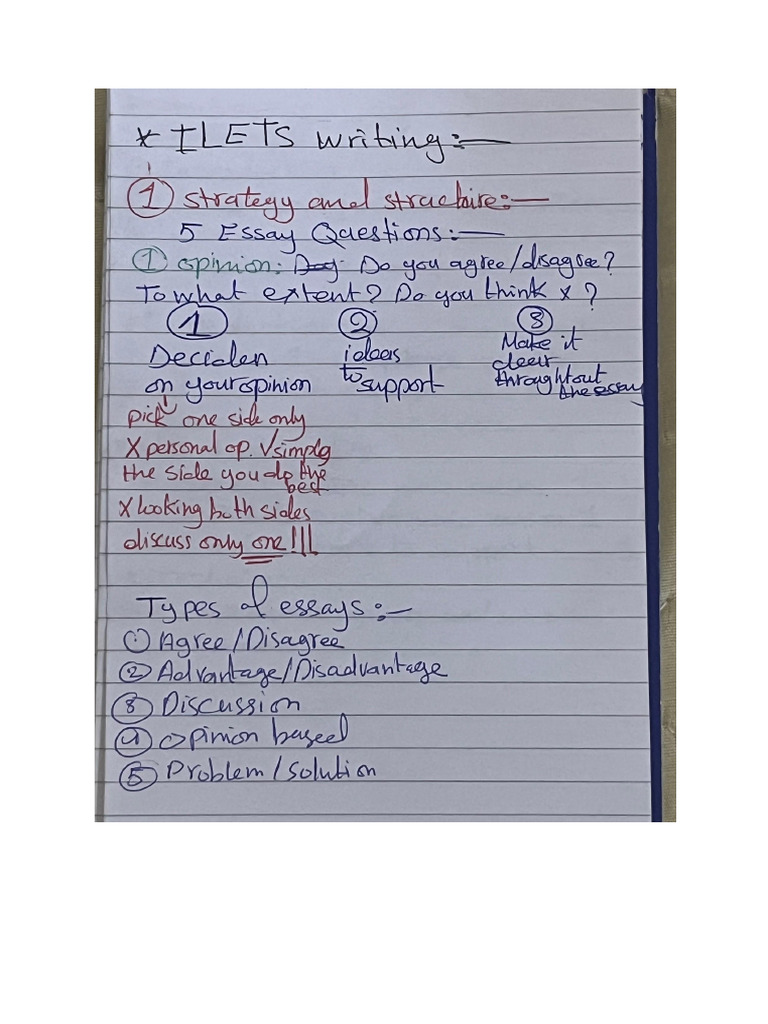 * ILETS writing:—
① strategy and structure:—
5 Essay Questions:—
① opinion: Do you agree/disagree?
To what extent? Do you think x?
① ② ③
Deciden ideas Make it
on your opinion to support clear
throughtout the essay
pick one side only
X personal op. √simply
the side you do the
best
X looking both sides
discuss only one!!!
Types of essays:—
① Agree/Disagree
② Advantage/Disadvantage
③ Discussion
④ Opinion based
⑤ Problem/Solution